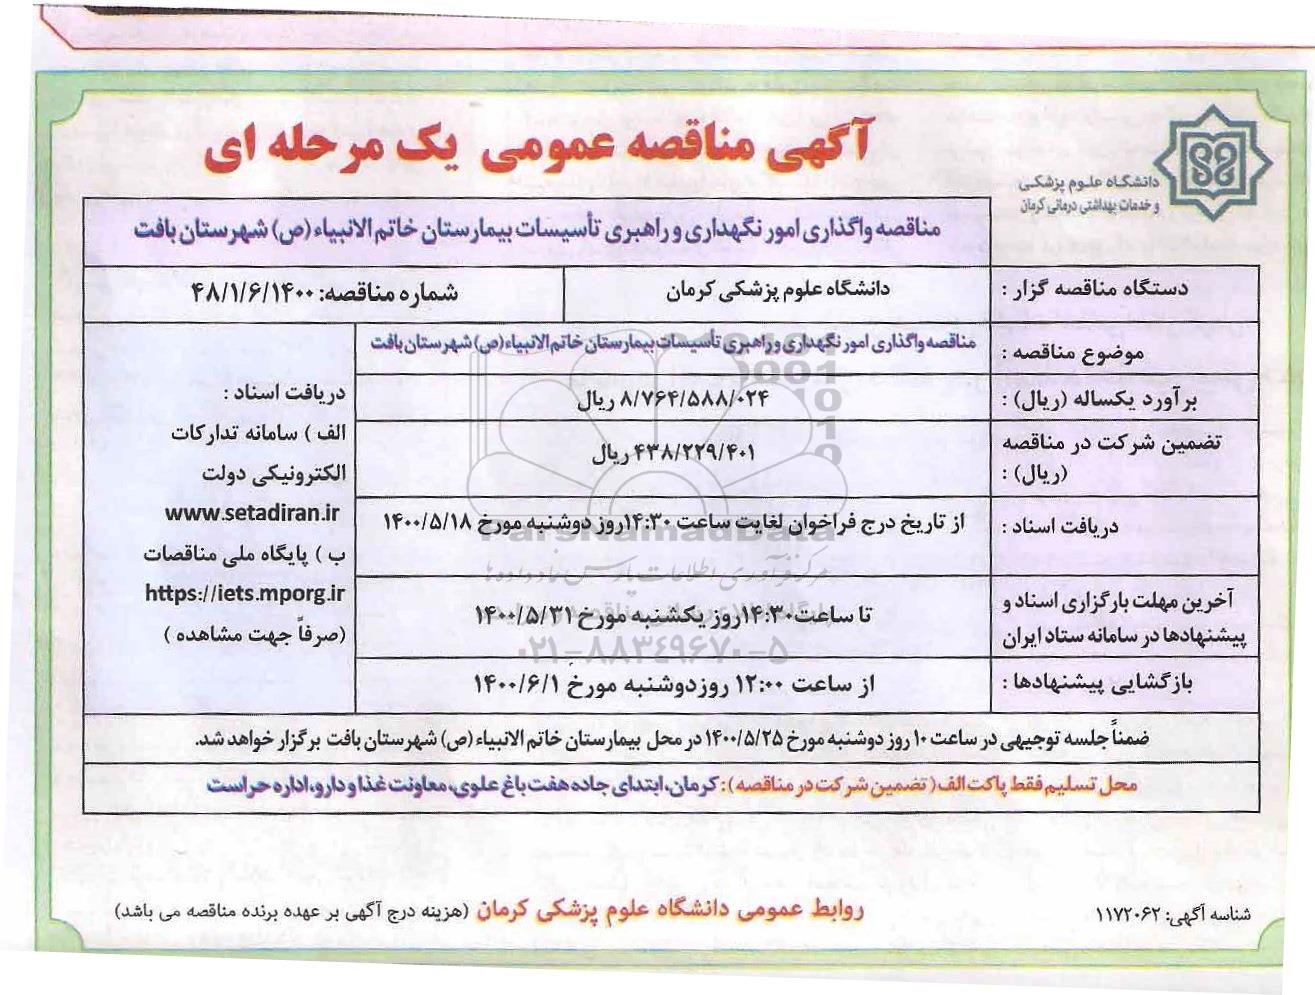 آگهی مناقصه عمومی یک مرحله ای
دانشگاه علوم پزشکی
و خدمات بهداشتی درمانی کرمان
مناقصه واگذاری امور نگهداری و راهبری تأسیسات بیمارستان خاتم الانبیاء (ص) شهرستان بافت
دستگاه مناقصه گزار :
دانشگاه علوم پزشکی کرمان
شماره مناقصه: ۴۸/۱/۶/۱۴۰۰
موضوع مناقصه :
مناقصه واگذاری امور نگهداری و راهبری تأسیسات بیمارستان خاتم الانبیاء (ص) شهرستان بافت
برآورد یکساله (ریال) :
۸/۷۶۴/۵۸۸/۰۲۴ ریال
تضمین شرکت در مناقصه
(ریال) :
۴۳۸/۲۲۹/۴۰۱ ریال
دریافت اسناد :
از تاریخ درج فراخوان لغایت ساعت ۱۴:۳۰ روز دوشنبه مورخ ۱۴۰۰/۵/۱۸
آخرین مهلت بارگزاری اسناد و
پیشنهادها در سامانه ستاد ایران
تا ساعت ۱۴:۳۰ روز یکشنبه مورخ ۱۴۰۰/۵/۳۱
بازگشایی پیشنهادها :
از ساعت ۱۲:۰۰ روز دوشنبه مورخ ۱۴۰۰/۶/۱
دریافت اسناد :
الف ) سامانه تدارکات
الکترونیکی دولت
www.setadiran.ir
ب ) پایگاه ملی مناقصات
https://iets.mporg.ir
(صرفاً جهت مشاهده )
ضمناً جلسه توجیهی در ساعت ۱۰ روز دوشنبه مورخ ۱۴۰۰/۵/۲۵ در محل بیمارستان خاتم الانبیاء (ص) شهرستان بافت برگزار خواهد شد.
محل تسلیم فقط پاکت الف ( تضمین شرکت در مناقصه ): کرمان، ابتدای جاده هفت باغ علوی، معاونت غذا و دارو، اداره حراست
شناسه آگهی: ۱۱۷۲۰۶۲
روابط عمومی دانشگاه علوم پزشکی کرمان (هزینه درج آگهی بر عهده برنده مناقصه می باشد)
ParsNamadData
مرکز فرآوری اطلاعات پارس نماد داده ها
۰۲۱-۸۸۳۴۹۶۷۰-۵